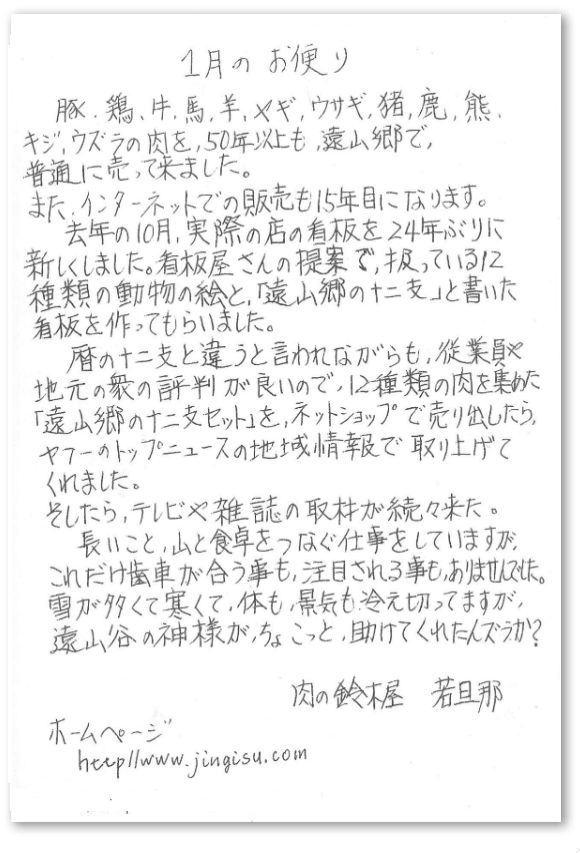 1月のお便り
豚、鶏、牛、馬、羊、ヤギ、ウサギ、猪、鹿、熊、
キジ、ウズラの肉を、50年以上も、遠山郷で、
普通に売って来ました。
また、インターネットでの販売も15年目になります。
去年の10月、実際の店の看板を24年ぶりに
新しくしました。看板屋さんの提案で、扱っている12
種類の動物の絵と、「遠山郷の十二支」と書いた
看板を作ってもらいました。
暦の十二支と違うと言われながらも、従業員や
地元の衆の評判が良いので、12種類の肉を集めた
「遠山郷の十二支セット」を、ネットショップで売り出したら、
ヤフーのトップニュースの地域情報で取り上げて
くれました。
そしたら、テレビや雑誌の取材が続々来た。
長いこと、山と食卓をつなぐ仕事をしていますが、
これだけ歯車が合う事も、注目される事も、ありませんでした。
雪が多くて寒くて、体も、景気も、冷え切ってますが、
遠山谷の神様が、ちょこっと、助けてくれたんズラか?
肉の鈴木屋 若旦那
ホームページ
http//www.jingisu.com